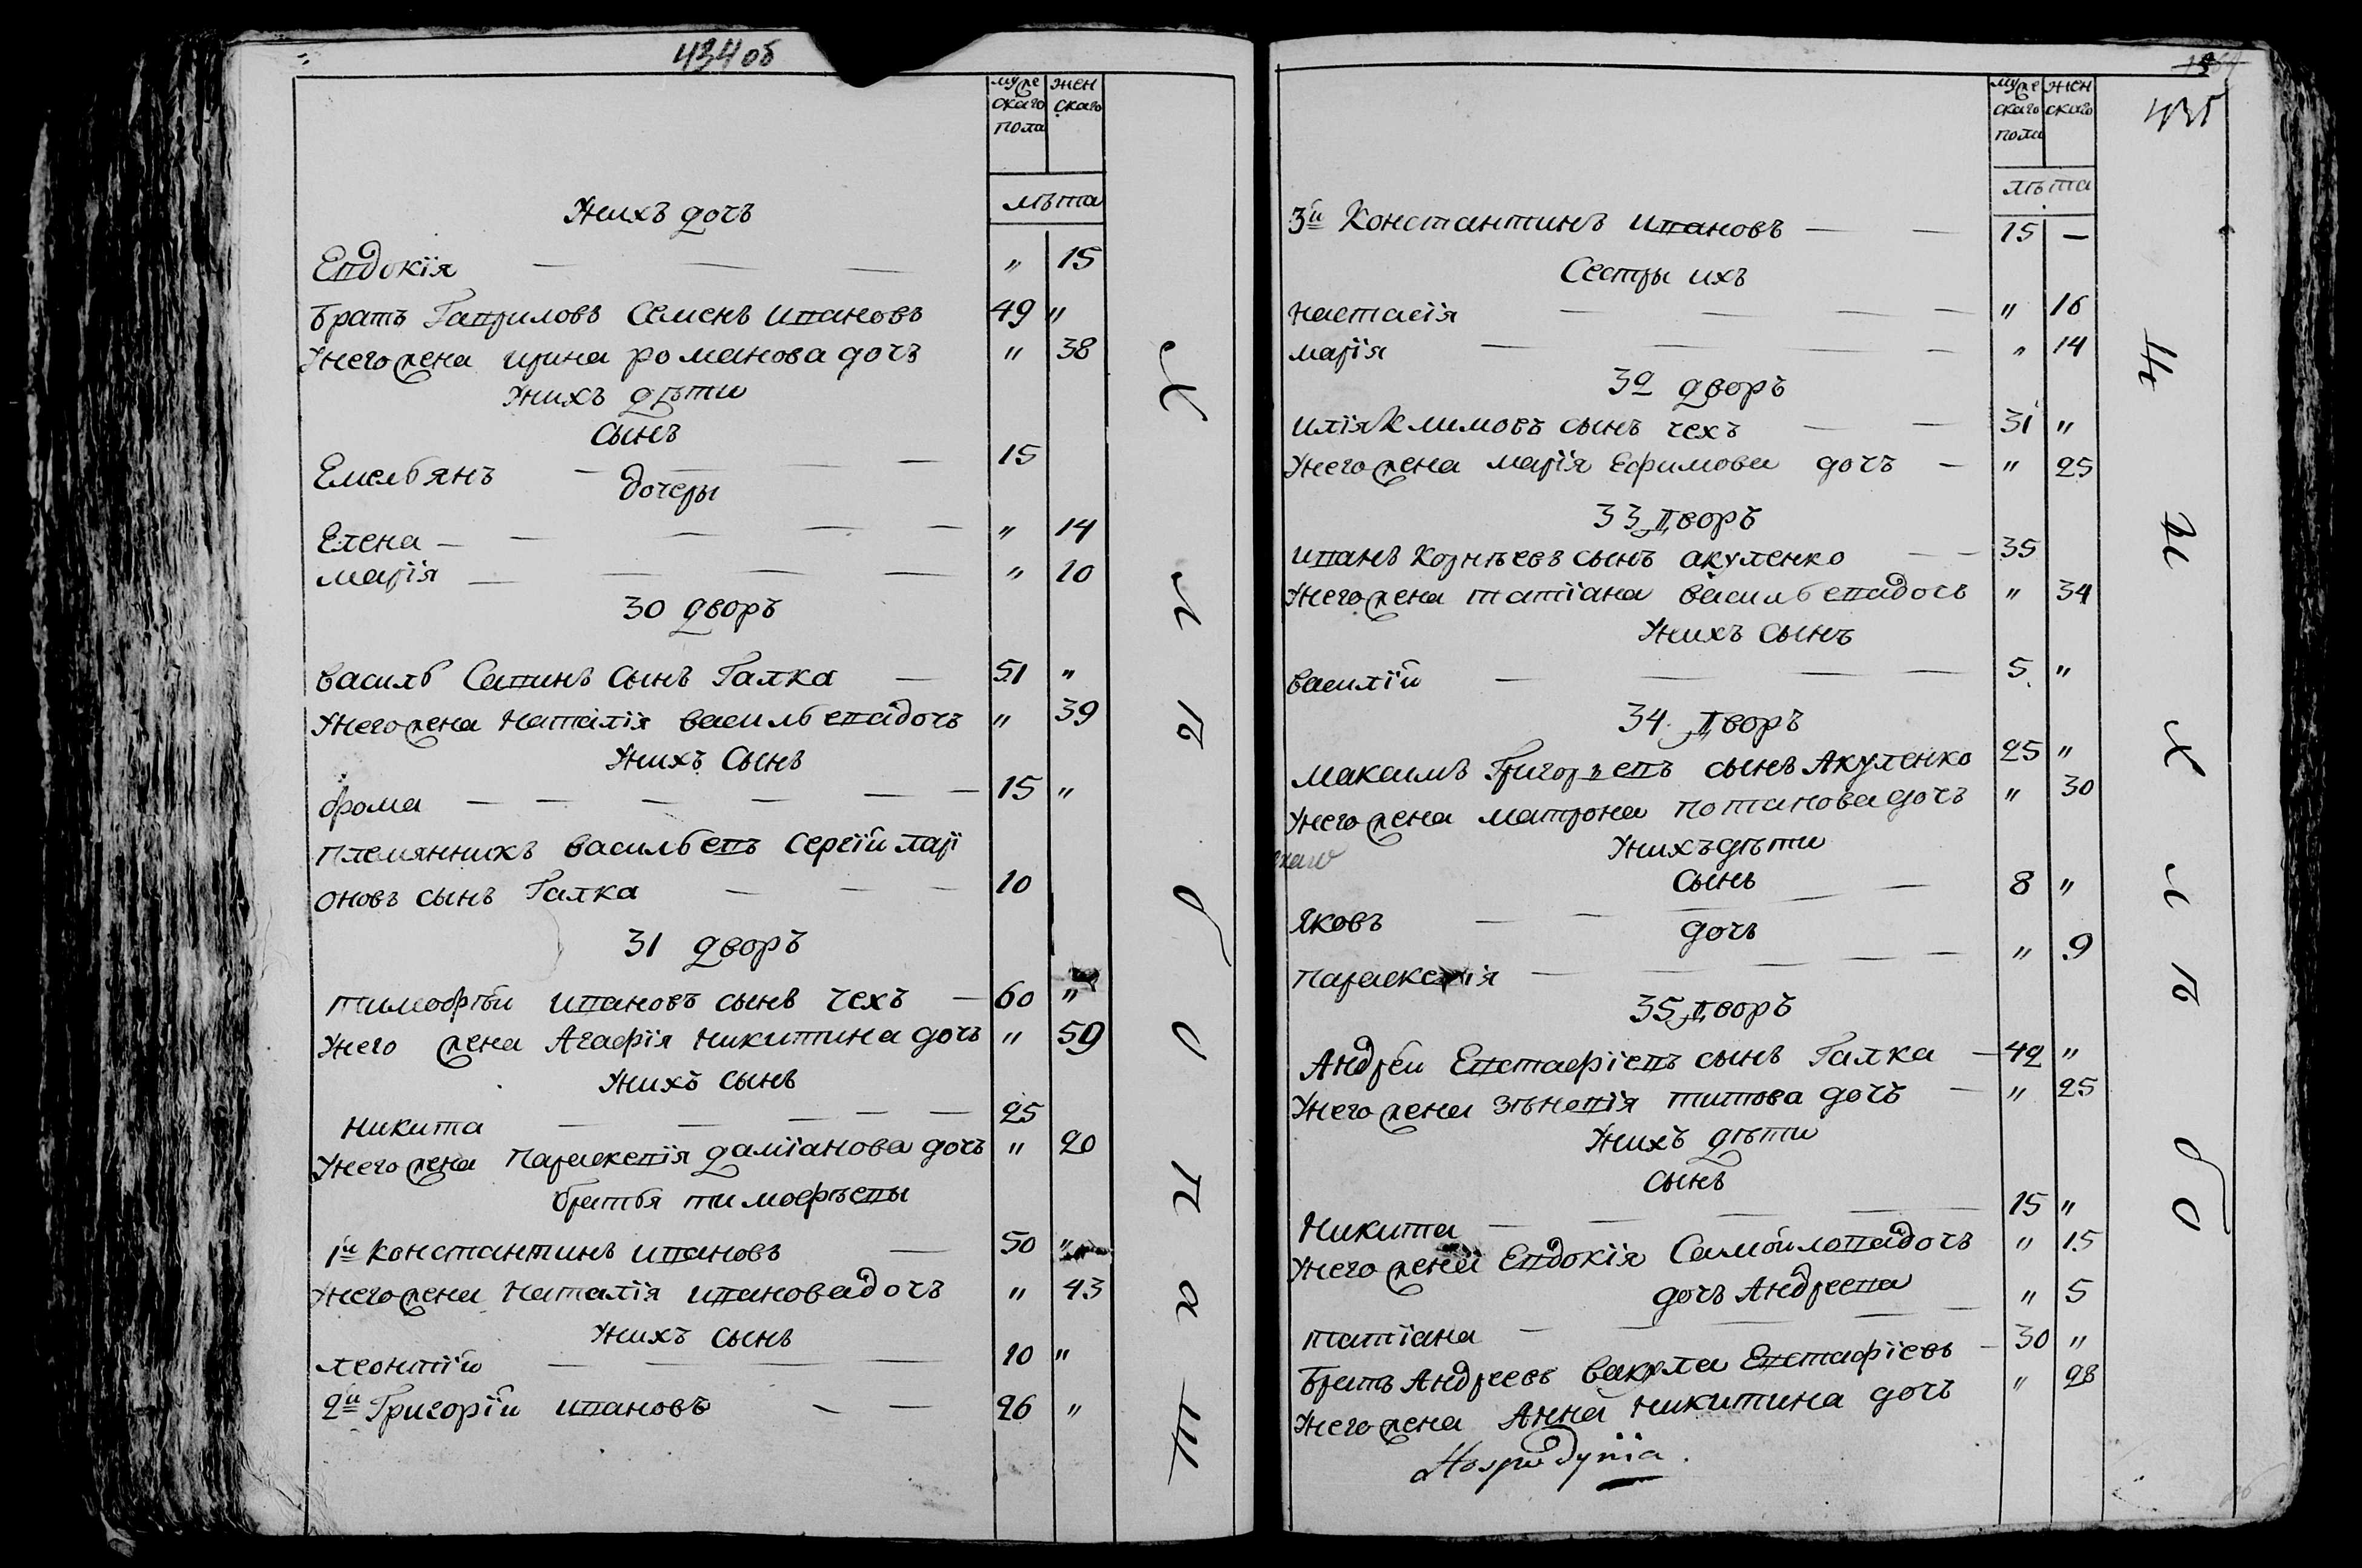 434 об
муже
скаго
пола
жен
скаго
лѣта
Унихъ дочъ
Евдокія — — — " 15
братъ Гавриловъ Семенъ ивановъ 49 "
Унего жена ирина романова дочъ " 38
Унихъ дѣти
сынъ
Емельянъ — — — 15
дочеры
Елена — — — — — " 14
марія — — — — " 10
30 дворъ
василь Савинъ сынъ Галка — 51 "
Унего жена наталія васильевадочъ " 39
Унихъ сынъ
фома — — — — — — 15 "
племянникъ васильевъ сергій ларі
оновъ сынъ Галка — — — 10
31 дворъ
тимофѣй ивановъ сынъ чехъ — 60 "
Унего жена Агафія никитина дочъ " 59
Унихъ сынъ
никита — — — — — 25
Унего жена параскевія даміанова дочъ " 20
братья тимофѣевы
1й константинъ ивановъ — 50 "
Унего жена наталія ивановадочъ " 43
Унихъ сынъ
леонтій — — — — 10 "
2й Григорій ивановъ — — 26 "
435
муже
скаго
пола
жен
скаго
лѣта
3й Константинъ ивановъ — — 15 —
Сестры ихъ
настасія — — — — " 16
марія — — — — " 14
32 дворъ
илія Климовъ сынъ чехъ — — 31 "
Унего жена марія Ефимова дочъ — " 25
33 дворъ
иванъ Корнѣевъ сынъ акуленко — — 35
Унего жена татіана васильевадочъ " 34
Унихъ сынъ
василій — — — — 5 "
34. дворъ
максимъ Григорьевъ сынъ Акуленко 25 "
Унего жена матрона потановадочъ " 30
Унихъ дѣти
сынъ
Яковъ — — — — 8 "
дочъ
параскевія — — — — — " 9
35 дворъ
Андрей Евстафіевъ сынъ Галка — 42 "
Унего жена зѣновія титова дочъ — " 25
Унихъ дѣти
сынъ
Никита — — — — — 15 "
Унего жена Евдокія Самойловадочъ " 15
дочъ Андреева
татіана — — — — — " 5
братъ Андреевъ вакула Евстафіевъ — 30 "
Унего жена Анна никитина дочъ " 28